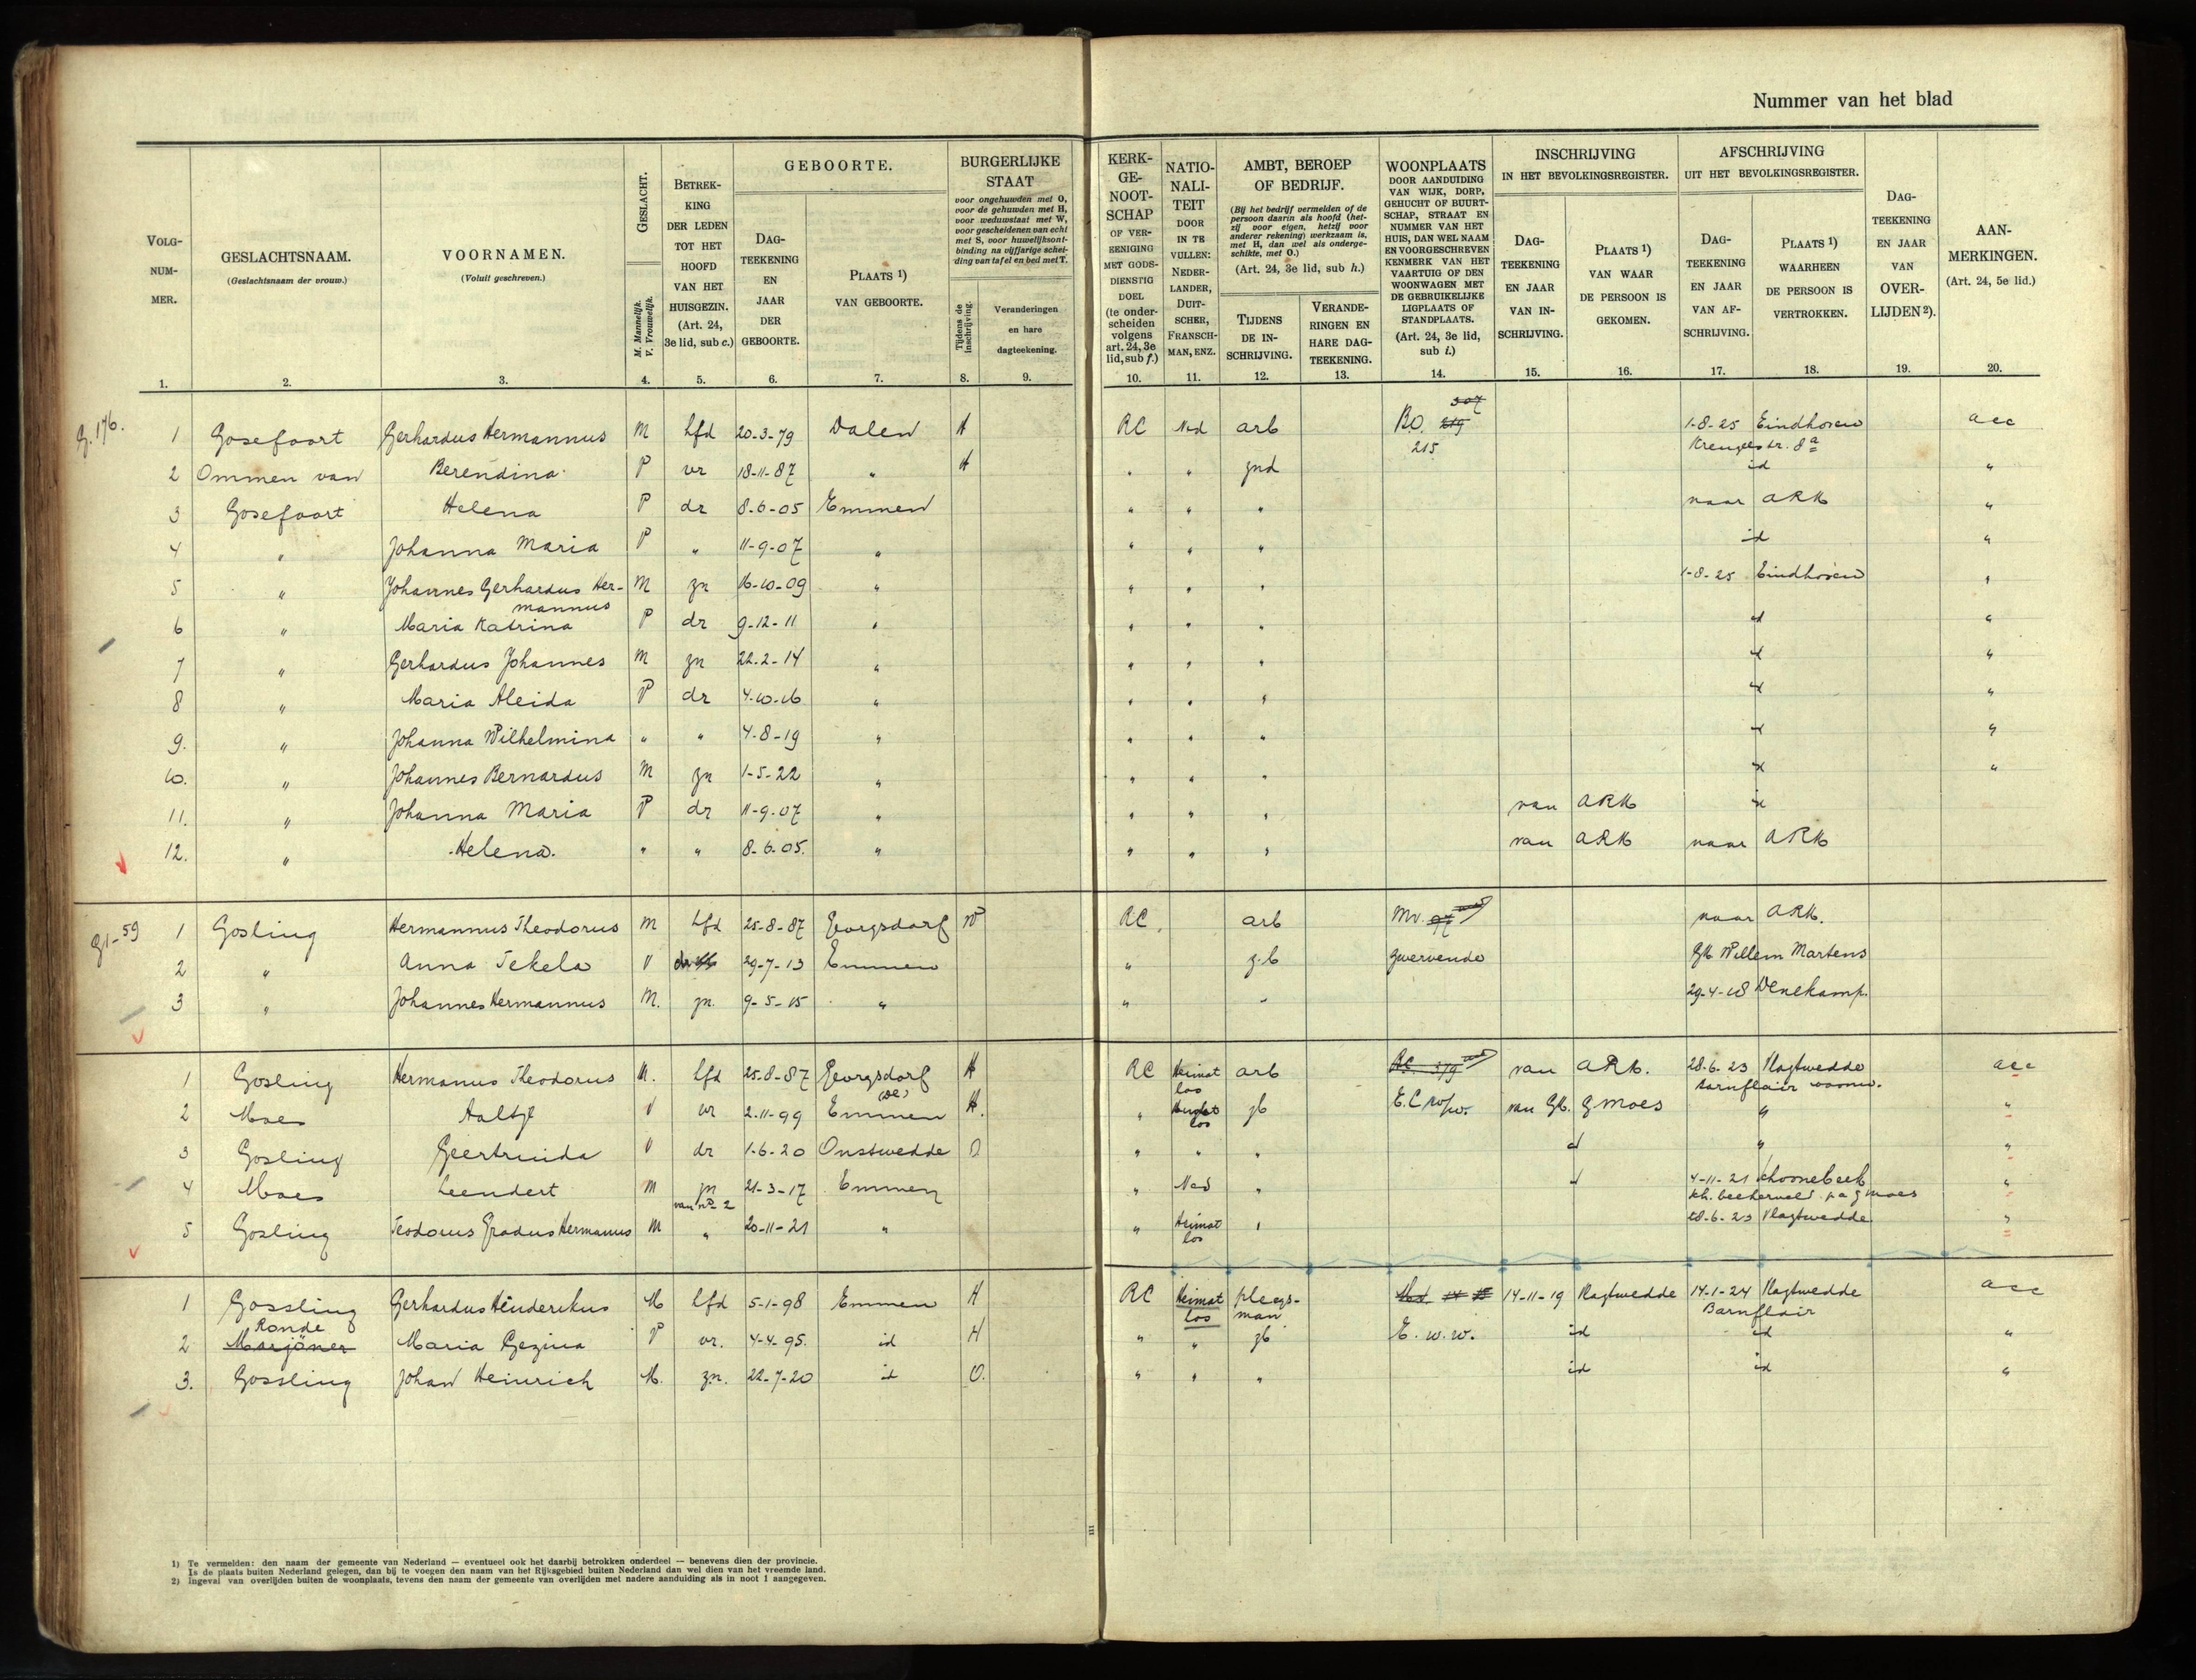 Nummer van het blad
VOLGNUMMER. 1.
GESLACHTSNAAM. (Geslachtsnaam der vrouw.) 2.
VOORNAMEN. (Voluit geschreven.) 3.
GESLACHT. M. Mannelijk. V. Vrouwelijk. 4.
BETREKKING DER LEDEN TOT HET HOOFD VAN HET HUISGEZIN. (Art. 24, 3e lid, sub c.) 5.
GEBOORTE.
DAGTEEKENING EN JAAR DER GEBOORTE. 6.
PLAATS 1) VAN GEBOORTE. 7.
BURGERLIJKE STAAT
voor ongehuwden met O, voor de gehuwden met H, voor weduwstaat met W, voor gescheidenen van echt met S, voor huwelijksontbinding na vijfjarige scheiding van tafel en bed met T.
Tijdens de inschrijving. 8.
Veranderingen en hare dagteekening. 9.
KERKGENOOTSCHAP OF VEREENIGING MET GODSDIENSTIG DOEL (te onderscheiden volgens art. 24, 3e lid, sub f.) 10.
NATIONALITEIT DOOR IN TE VULLEN: NEDERLANDER, DUITSCHER, FRANSCHMAN, ENZ. 11.
AMBT, BEROEP OF BEDRIJF.
(Bij het bedrijf vermelden of de persoon daarin als hoofd (hetzij voor eigen, hetzij voor anderer rekening) werkzaam is, met H, dan wel als ondergeschikte, met O.)
(Art. 24, 3e lid, sub h.)
TIJDENS DE INSCHRIJVING. 12.
VERANDERINGEN EN HARE DAGTEEKENING. 13.
WOONPLAATS DOOR AANDUIDING VAN WIJK, DORP, GEHUCHT OF BUURTSCHAP, STRAAT EN NUMMER VAN HET HUIS, DAN WEL NAAM EN VOORGESCHREVEN KENMERK VAN HET VAARTUIG OF DEN WOONWAGEN MET DE GEBRUIKELIJKE LIGPLAATS OF STANDPLAATS. (Art. 24, 3e lid, sub i.) 14.
INSCHRIJVING IN HET BEVOLKINGSREGISTER.
DAGTEEKENING EN JAAR VAN INSCHRIJVING. 15.
PLAATS 1) VAN WAAR DE PERSOON IS GEKOMEN. 16.
AFSCHRIJVING UIT HET BEVOLKINGSREGISTER.
DAGTEEKENING EN JAAR VAN AFSCHRIJVING. 17.
PLAATS 1) WAARHEEN DE PERSOON IS VERTROKKEN. 18.
DAGTEEKENING EN JAAR VAN OVERLIJDEN 2). 19.
AANMERKINGEN. (Art. 24, 5e lid.) 20.
G. 176. 1 Gosefoort Gerhardus Hermannus M hfd 20-3-79 Dalen H RC Ned arb B.O. 307 219 215 1-8-25 Eindhoven acc
2 Ommen van Berendina P vr 18-11-87 " H " " znd id "
3 Gosefoort Helena P dr 8-6-05 Emmen " " " naar ARK "
4 " Johanna Maria P " 11-9-07 " " " " id "
5 " Johannes Gerhardus Hermannus M zn 16-10-09 " " " " 1-8-25 Eindhoven "
6 " Maria Katrina P dr 9-12-11 " " " " id "
7 " Gerhardus Johannes M zn 22-2-14 " " " " id "
8 " Maria Aleida P dr 4-10-16 " " " " id "
9. " Johanna Wilhelmina " " 4-8-19 " " " " id "
10. " Johannes Bernardus M zn 1-5-22 " " " " id "
11. " Johanna Maria P dr 11-9-07 " " " " van ARK id
12. " Helena. " " 8-6-05. " " " " van ARK naar ARK
G1-59 1 Gosling Hermannus Theodorus M hfd 25-8-87 W RC arb naar ARK.
2 " Anna Tekela V 29-7-13 Emmen " z.b zwervende Willem Martens
3 " Johannes Hermannus M. zn. 9-5-15 " " " 29-4-18 Denekamp.
1 Gosling Hermanus Theodorus M. hfd 25-8-87 H RC Heimatlos arb van ARK. 28-6-23 Vlagtwedde acc
2 Moes Aaltje V vr 2-11-99 Emmen H. " Heimatlos zb van GK. G Moes " "
3 Gosling Geertruida V dr 1-6-20 Onstwedde O " " " id " "
4 Moes Leendert M zn van no 2 21-3-17 Emmen " Ned " id 4-11-21 Schoonebeek "
5 Gosling Teodorus Gradus Hermanus M " 20-11-21 " " Heimatlos " 28-6-23 Vlagtwedde "
1 Gossling Gerhardus Hinderikus M hfd 5-1-98 Emmen H RC Heimatlos ploegsman 14-11-19 Vlagtwedde 14-1-24 Vlagtwedde Barnflair acc
2 Ronde Marjöner Maria Gezina P vr. 4-4-95. id H " " zb E. w.w. id id "
3. Gossling Johan Heinrich M. zn. 22-7-20 id O. " " " id id "
1) Te vermelden: den naam der gemeente van Nederland — eventueel ook het daarbij betrokken onderdeel — benevens dien der provincie.
Is de plaats buiten Nederland gelegen, dan bij te voegen den naam van het Rijksgebied buiten Nederland dan wel dien van het vreemde land.
2) Ingeval van overlijden buiten de woonplaats, tevens den naam der gemeente van overlijden met nadere aanduiding als in noot 1 aangegeven.